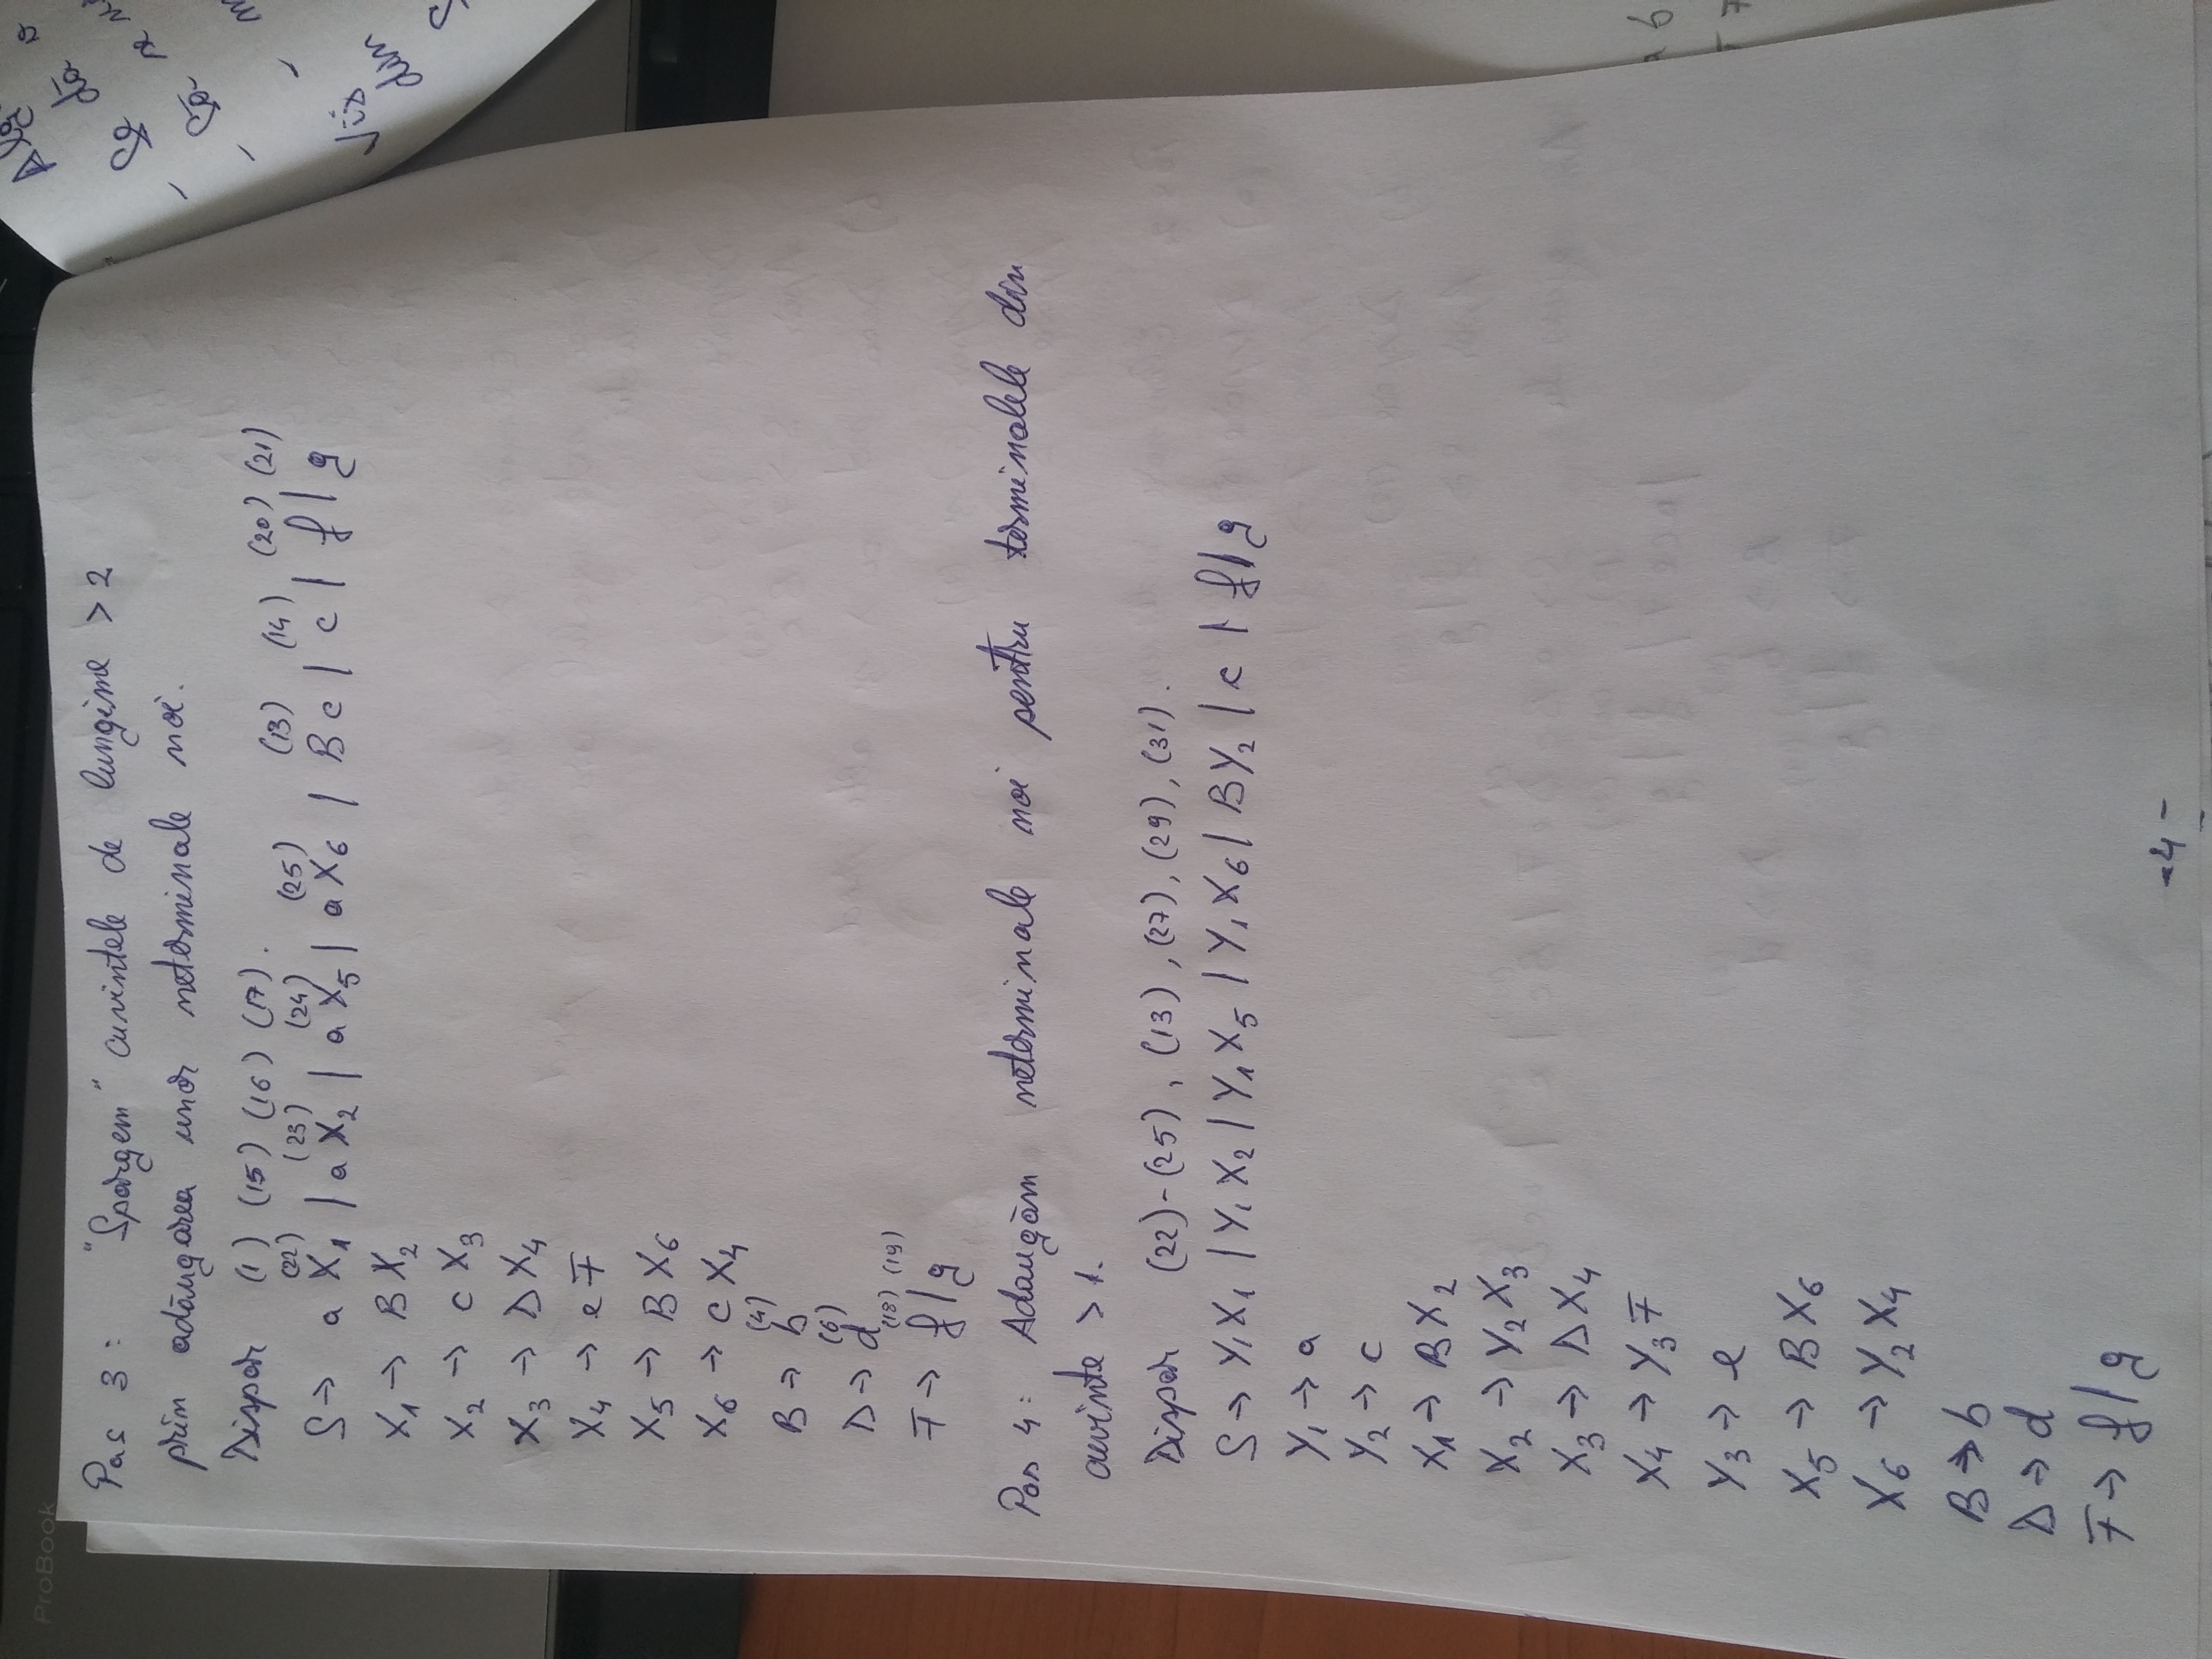 ProBook
Pas 3: "Spargem" cuvintele de lungime > 2
prin adăugarea unor neterminale noi.
Dispar (1) (15) (16) (17).
(22) (23) (24) (25) (13) (14) (20) (21)
S → a X₁ | a X₂ | a X₅ | a X₆ | B c | c | f | g
X₁ → B X₂
X₂ → c X₃
X₃ → D X₄
X₄ → e F
X₅ → B X₆
X₆ → c X₄
(4)
B → b
(6)
D → d
(18) (19)
F → f | g
Pas 4: Adaugăm neterminale noi pentru terminalele din
cuvinte > 1.
Dispar (22)-(25), (13), (27), (29), (31).
S → Y₁X₁ | Y₁X₂ | Y₁X₅ | Y₁X₆ | BY₂ | c | f | g
Y₁ → a
Y₂ → c
X₁ → B X₂
X₂ → Y₂ X₃
X₃ → D X₄
X₄ → Y₃ F
Y₃ → e
X₅ → B X₆
X₆ → Y₂ X₄
B → b
D → d
F → f | g
-4-
- Se dă o
- Să se
din